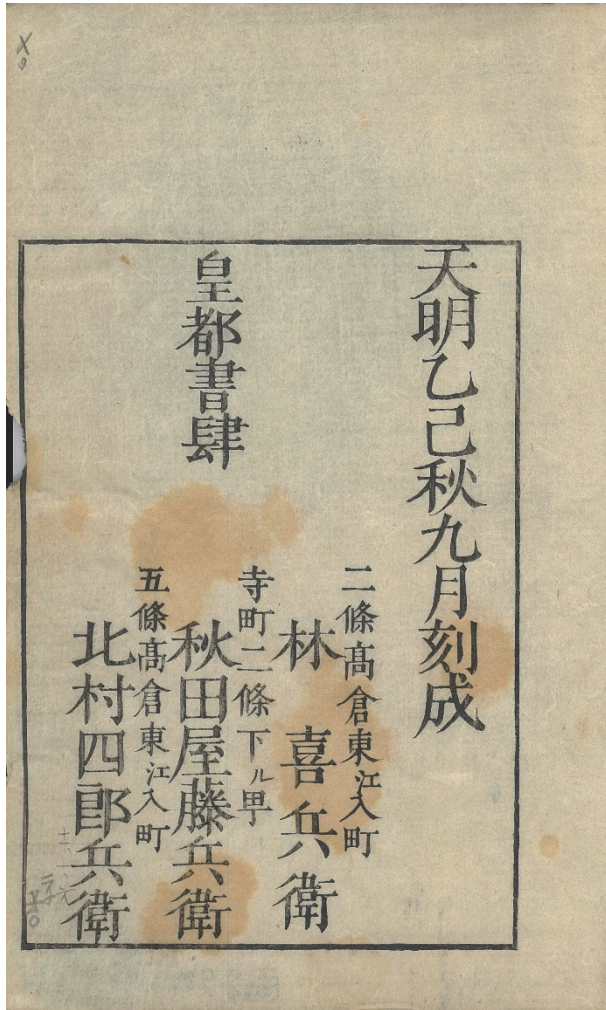 天明乙己秋九月刻成
皇都書肆
二條髙倉東江入町
林喜兵衛
寺町二條下ル甼
秋田屋藤兵衛
五條髙倉東江入町
北村四郎兵衛